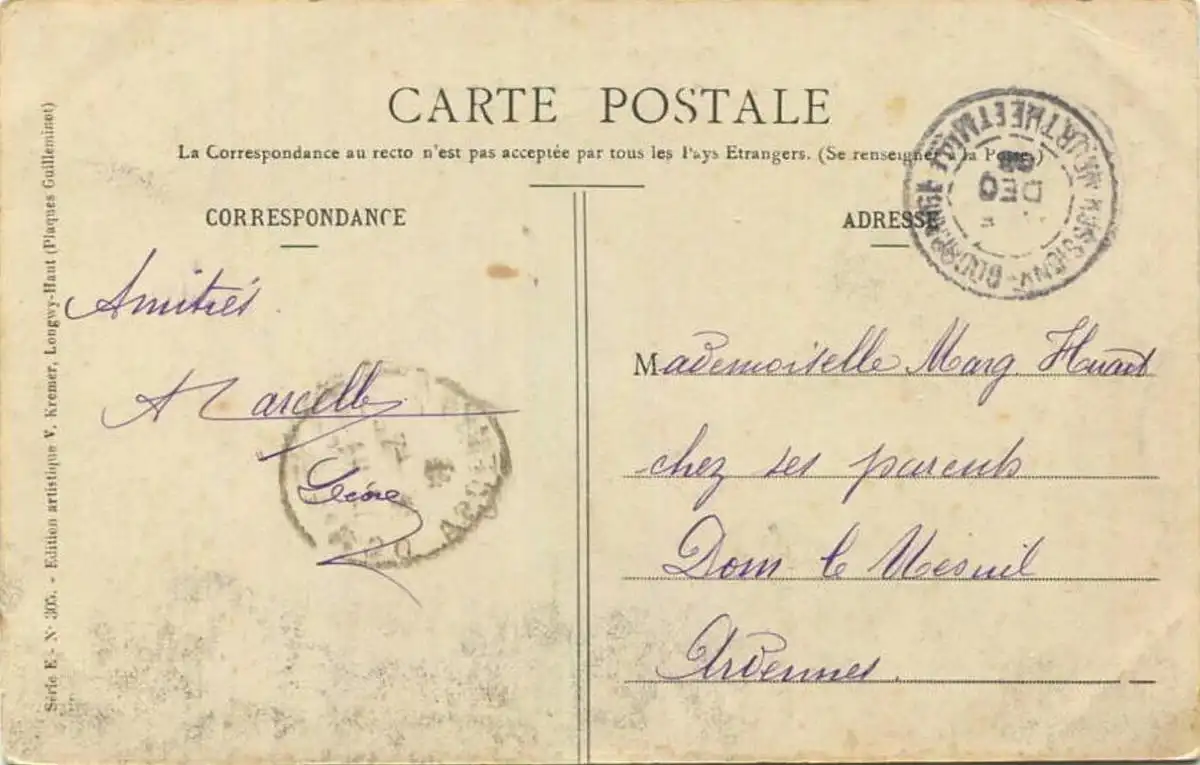 CARTE POSTALE
La Correspondance au recto n'est pas acceptée par tous les Pays Etrangers. (Se renseigner à la Poste.)
CORRESPONDANCE
ADRESSE
Amitiés
Marcelle
Mademoiselle Marg. Huart
chez ses parents
Dom le Mesnil
Ardennes
Série E - N° 305. - Edition artistique V. Kremer, Longwy-Haut (Plaques Guilleminot)
HUSSIGNY-GODBRANGE
MEURTHE ET MOSELLE
DEC
08
ARDENNES